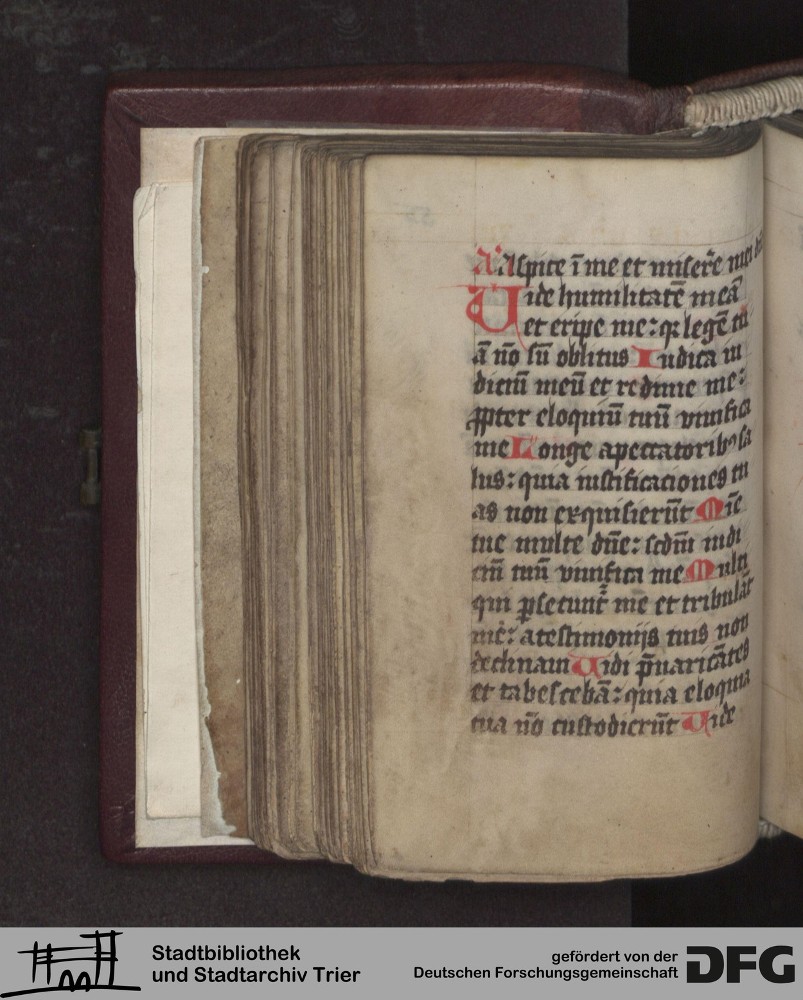 A Aspice ī me et miserēe mei dn̄e
Uide humilitatē meā
et eripe me: qꝛ legē tu
ā nō sū oblitus Iudica iu
diciū meū et redime me:
ꝓpter eloquiū tuū viuifica
me Longe a peccatoribꝰ sa
lus: quia iustificaciones tu
as non exquisierūt Mīe
tue multe dn̄e: scdm̄ iudi
ciū tuū viuifica me Multi
qui ꝑsecunt̄ me et tribulāt
me: a testimonijs tuis non
declinaui Uidi p̄uaricātes
et tabescebā: quia eloquia
tua nō custodierūt Uide
Stadtbibliothek
und Stadtarchiv Trier
gefördert von der
Deutschen Forschungsgemeinschaft
DFG